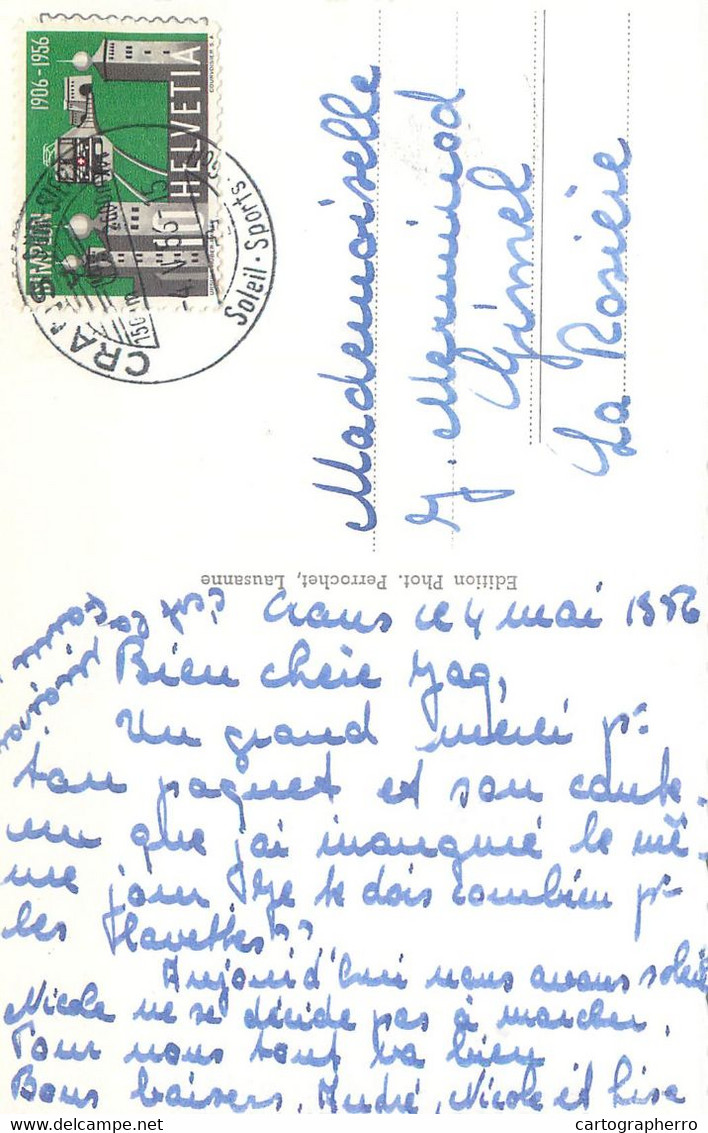 1906-1956
HELVETIA
COURVOISIER S.A.
SIMPLON
CRANS S. SIERRE
-4.V.56-15
1500 m
Soleil. Sports.
Mademoiselle
J. Mermimod
Gimel
La Rosière
Edition Phot. Perrochet, Lausanne
Crans le 4 mai 1956
Bien chère Jaq,
Un grand merci pr
ton paquet et son conte-
nu que j'ai inauguré le mê-
me jour. Je te dois combien pr
les lavettes ??
Aujourd'hui nous avons soleil
Nicole ne se décide pas à marcher.
Pour nous tout va bien
Bons baisers. André, Nicole et Lise
cartographerro